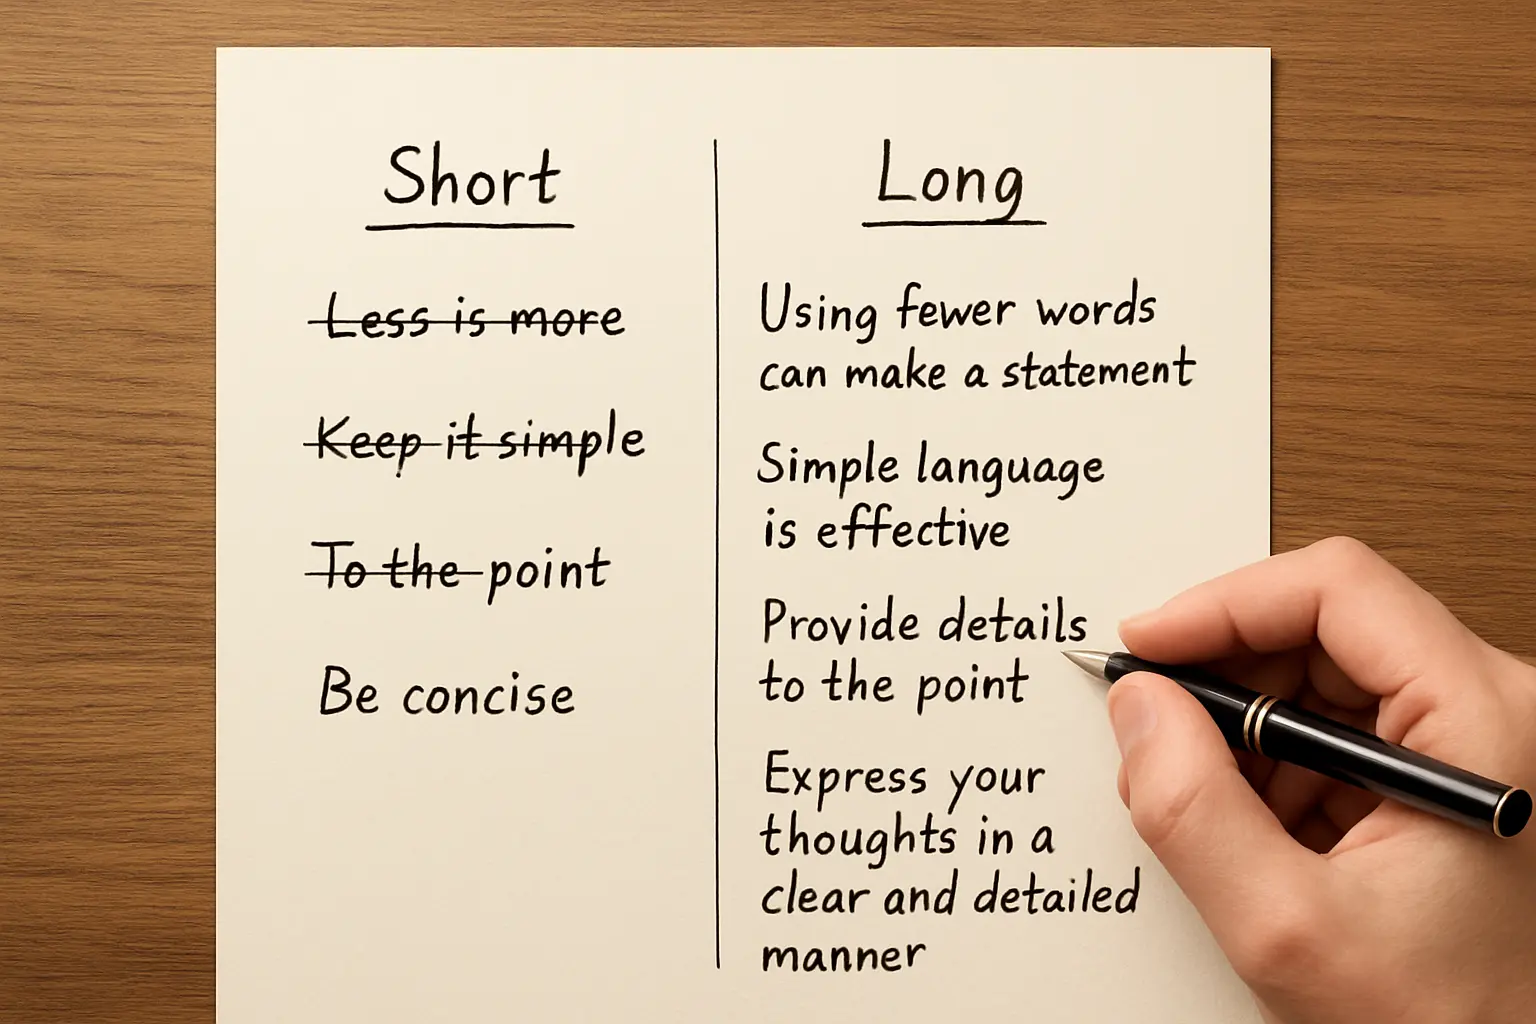 Short
Less is more
Keep it simple
To the point
Be concise
Long
Using fewer words
can make a statement
Simple language
is effective
Provide details
to the point
Express your
thoughts in a
clear and detailed
manner